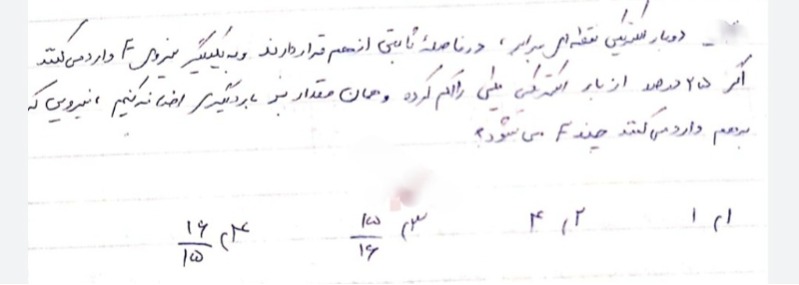 ـ دو بار الکتریکی نقطه‌ای برابر، در فاصلهٔ ثابتی از هم قرار دارند و به یکدیگر نیروی F وارد می‌کنند
اگر ۲۵ درصد از بار الکتریکی یکی را کم کرده و همان مقدار بر بار دیگری اضافه کنیم، نیرویی که
بر هم وارد می‌کنند چند F می‌شود؟
۱) ۱ ۲) ۴ ۳) ۱۵/۱۶ ۴) ۱۶/۱۵